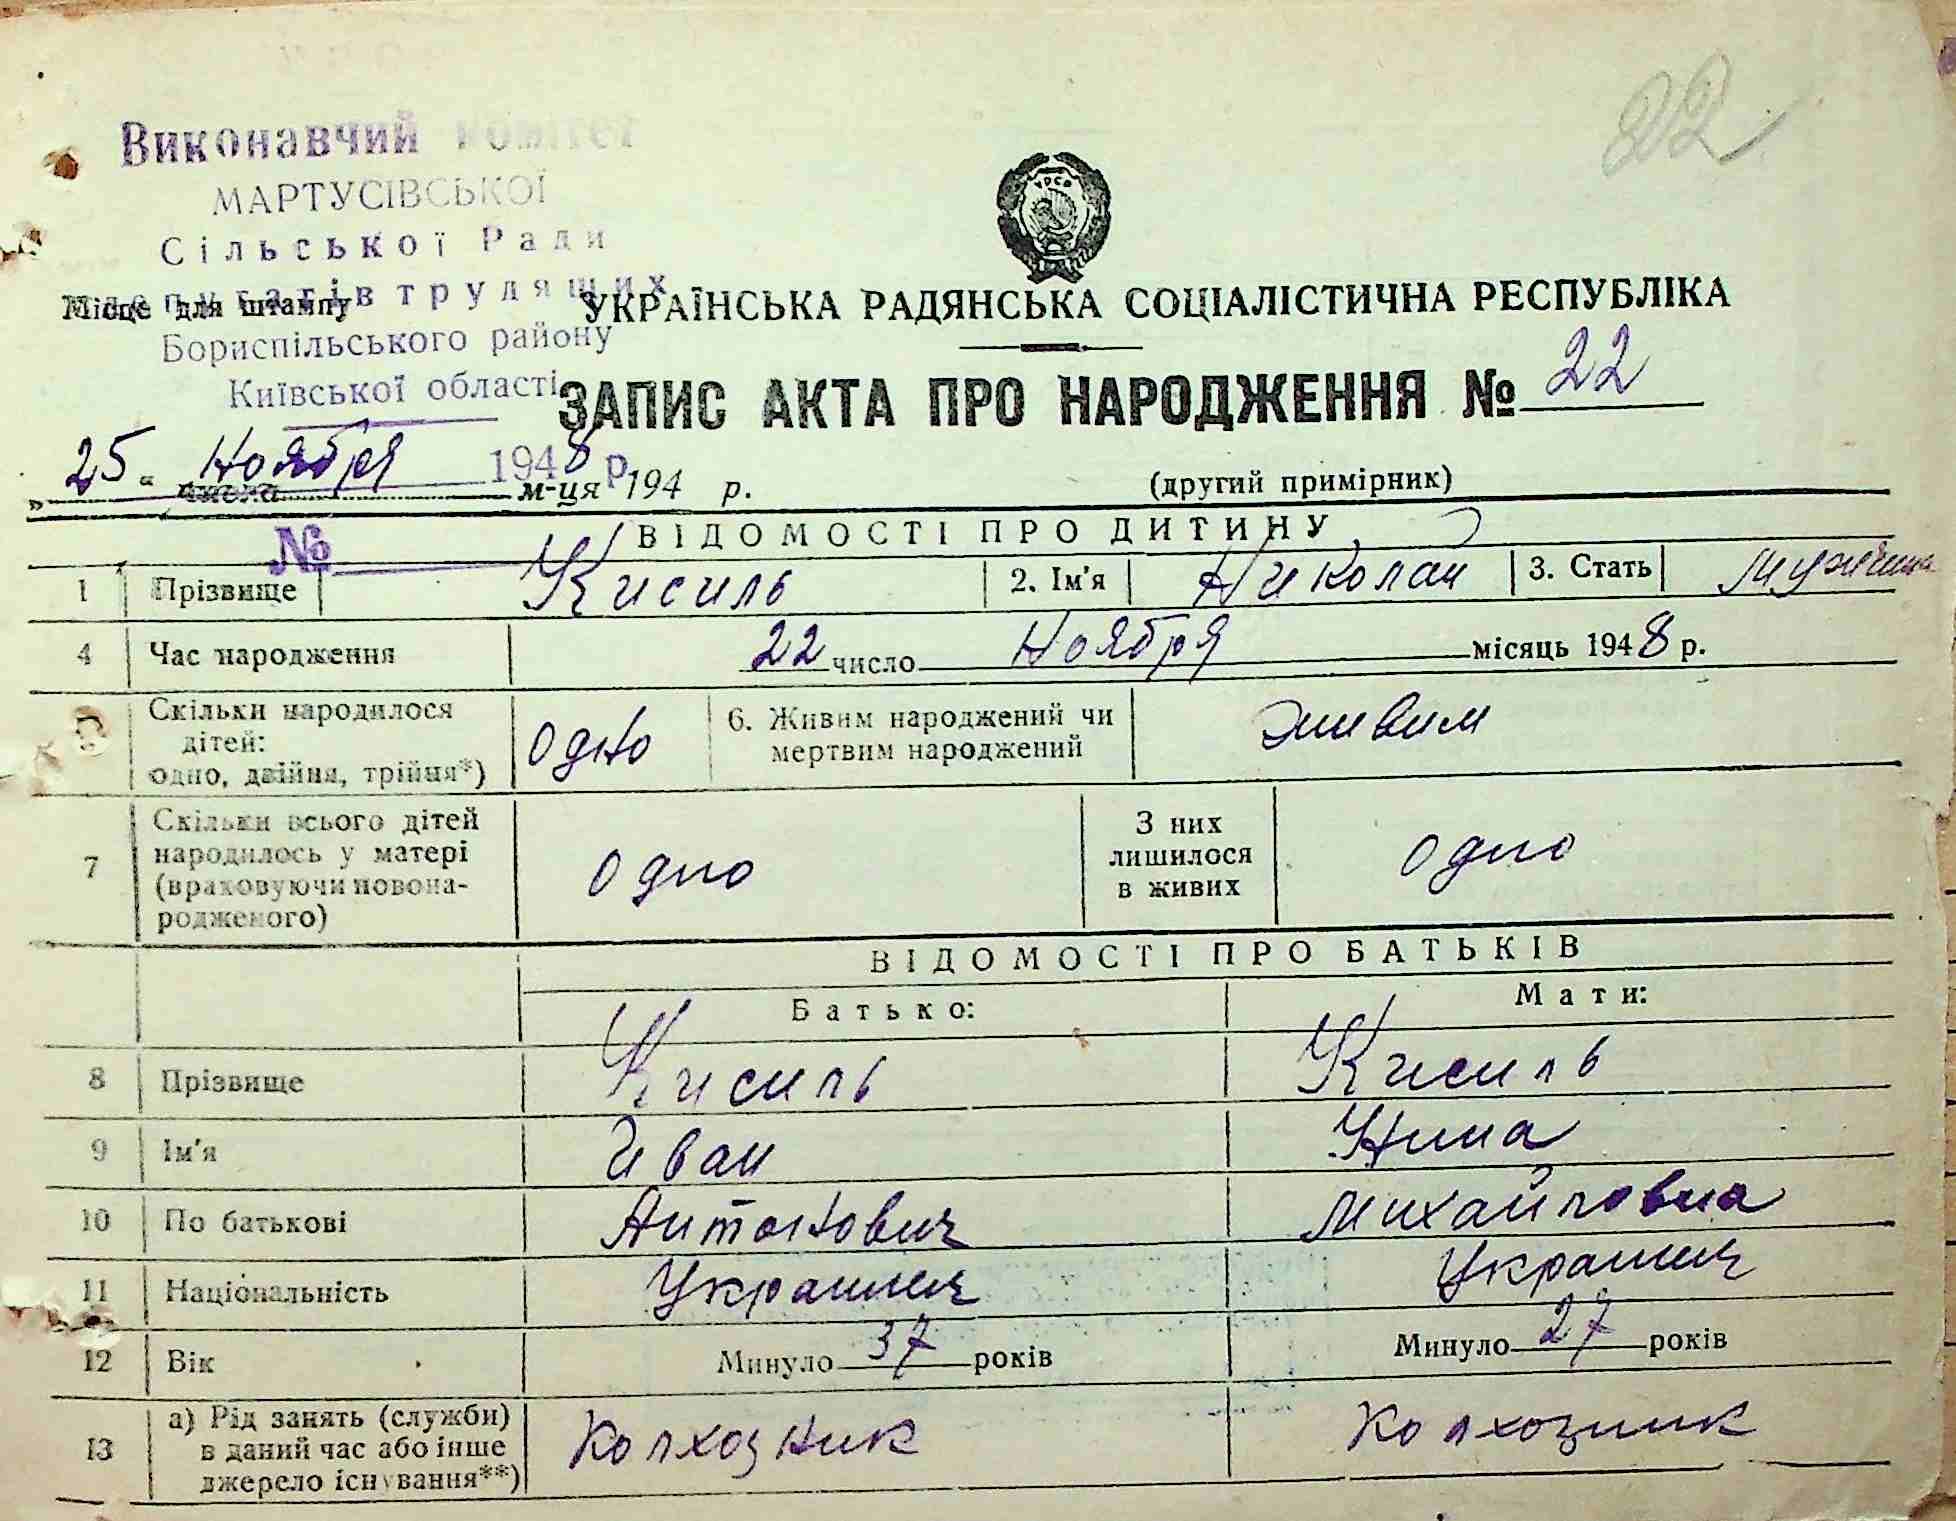 22
Виконавчий комітет
МАРТУСІВСЬКОЇ
Сільської Ради
депутатів трудящих
Місце для штампу
Бориспільського району
Київської області
УРСР
УКРАЇНСЬКА РАДЯНСЬКА СОЦІАЛІСТИЧНА РЕСПУБЛІКА
ЗАПИС АКТА ПРО НАРОДЖЕННЯ № 22
25 Ноября 1948 р.
„ " числа м-ця 194 р.
(другий примірник)
№
ВІДОМОСТІ ПРО ДИТИНУ
1 Прізвище Кисиль 2. Ім'я Николай 3. Стать Мужчина
4 Час народження 22 число Ноября місяць 1948 р.
Скільки народилося дітей: одно, двійня, трійня*) одно 6. Живим народжений чи мертвим народжений живим
7 Скільки всього дітей народилось у матері (враховуючи новонародженого) одно З них лишилося в живих одно
ВІДОМОСТІ ПРО БАТЬКІВ
Батько: Мати:
8 Прізвище Кисиль Кисиль
9 Ім'я Иван Нина
10 По батькові Антонович Михайловна
11 Національність Украинец Украинец
12 Вік Минуло 37 років Минуло 27 років
13 а) Рід занять (служби) в даний час або інше джерело існування**) Колхозник Колхозник